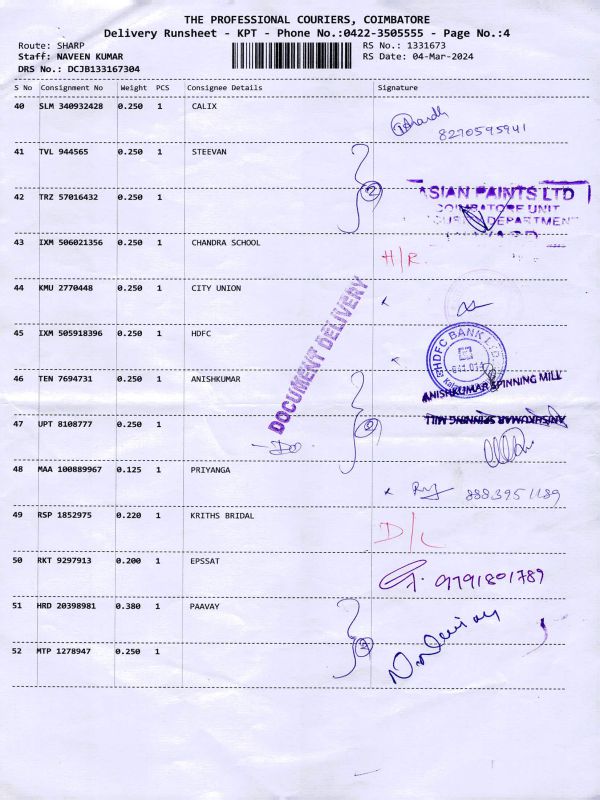 THE PROFESSIONAL COURIERS, COIMBATORE
Delivery Runsheet - KPT - Phone No.:0422-3505555 - Page No.:4
Route: SHARP RS No.: 1331673
Staff: NAVEEN KUMAR RS Date: 04-Mar-2024
DRS No.: DCJB133167304
S No Consignment No Weight PCS Consignee Details Signature
40 SLM 340932428 0.250 1 CALIX
8270595941
41 TVL 944565 0.250 1 STEEVAN
2
42 TRZ 57016432 0.250 1
ASIAN PAINTS LTD
COIMBATORE UNIT
DEPARTMENT
43 IXM 506021356 0.250 1 CHANDRA SCHOOL
H/R
44 KMU 2770448 0.250 1 CITY UNION
DOCUMENT DELIVERY
45 IXM 505918396 0.250 1 HDFC
HDFC BANK LTD.
46 TEN 7694731 0.250 1 ANISHKUMAR
ANISHKUMAR SPINNING MILL
ANISHKUMAR SPINNING MILL
47 UPT 8108777 0.250 1
48 MAA 100889967 0.125 1 PRIYANGA
8883951189
49 RSP 1852975 0.220 1 KRITHS BRIDAL
D/L
50 RKT 9297913 0.200 1 EPSSAT
9791801789
51 HRD 20398981 0.380 1 PAAVAY
52 MTP 1278947 0.250 1